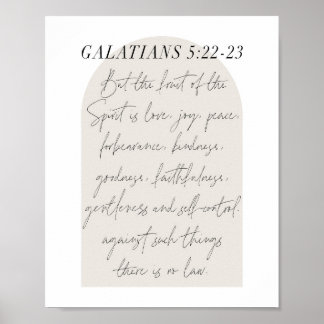 GALATIANS 5:22-23
But the fruit of the
Spirit is love, joy, peace,
forbearance, kindness,
goodness, faithfulness,
gentleness and self-control.
against such things
there is no law.